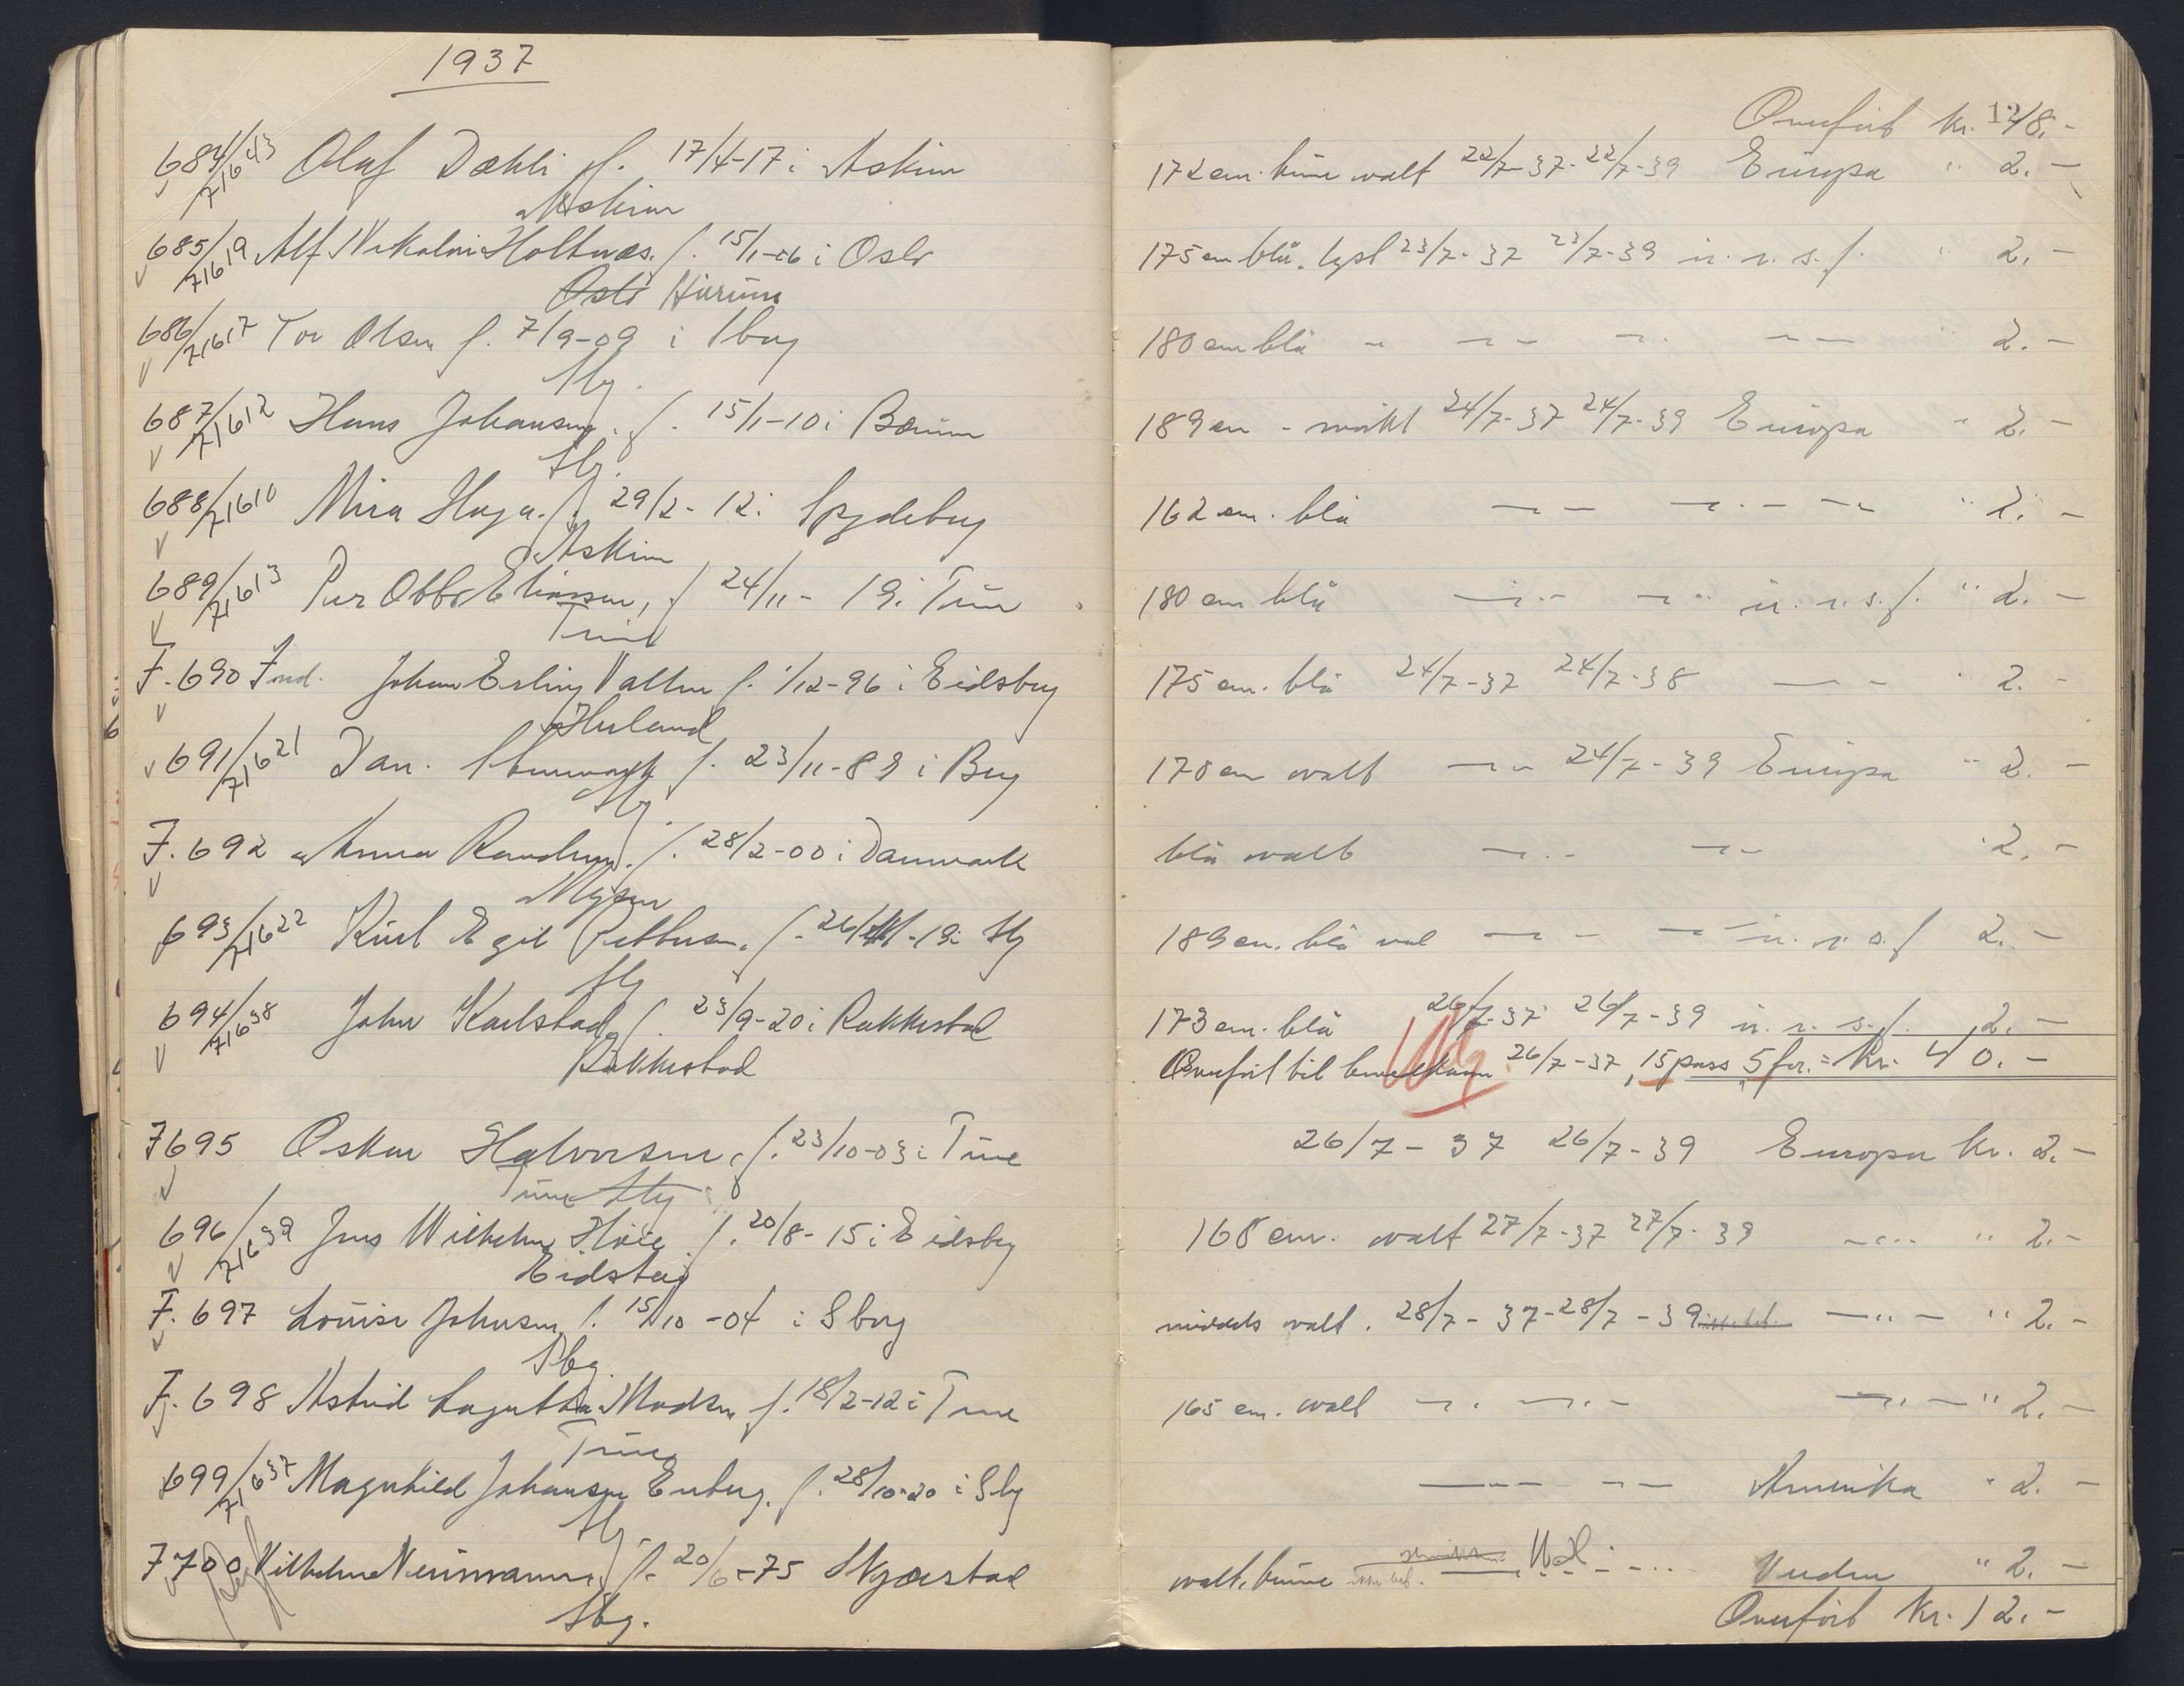 1937
684/71643 Olaf Dæhli f. 17/4-17 i Askim
Askim
685/71619 Alf Nikolai Holtnæs. f. 15/1-16 i Oslo
Oslo Hurum
686/71617 Tor Olsen f. 7/9-09 i Sbag
Sbg.
687/71612 Hans Johansen. f. 15/1-10 i Bærum
Sbg.
688/71610 Mira Haga. f. 29/2-12 i Spydeberg
Askim
689/71613 Per Otto Eliassen, f 24/11-19 i Tune
Tune
F. 690 Fred. Johan Erling Valtin f. 1/12-96 i Eidsberg
691/71621 Dan. f. 23/11-89 i Berg
Sbg
F. 692 Anna f. 28/2-00 i Danmark
Mysen
693/71622 Kurt Egil Pettersen. f. 26/ -19 i Sbg
Sbg
694/71638 John Karlstad f. 23/9-20 i Rakkestad
Rakkestad
F 695 Oskar Halvorsen, f. 23/10-03 i Tune
Tune Sbg
696/71639 Jens Wilhelm Høie f. 20/8-15 i Eidsberg
Eidsberg
F. 697 Louise Johnsen f. 15/10-04 i Sbrg
Sbg.
F. 698 Astrid Madsen f. 18/2-12 i Tune
Tune
699/71637 Magnhild Johansen Enberg. f. 28/10-20 i Sbg
Sbg
F 700 Wilhelm Neumann, f. 20/6-75
Sbg.
Overført kr. 128.-
172 cm. brune ovalt 22/7-37-22/7-39 Europa " 2.-
175 cm blå. lysl 23/7-37 23/7-39 u. r. s. f. " 2.-
180 cm blå - - - - - " 2.-
189 cm - mørkt 24/7-37 24/7-39 Europa " 2.-
162 cm. blå - " - - " - " 2.-
180 cm blå - " - - " u. r. s. f. " 2.-
175 cm. blå 24/7-37 24/7-38 - " - " 2.-
170 cm ovalt - " - 24/7-39 Europa " 2.-
blå ovalt - " - - " - " 2.-
189 cm. blå oval - " - - " - u. r. s. f 2.-
173 cm. blå 26/7-37 26/7-39 u. r. s. f. 2.-
Overført til 26/7-37, 15 pass, 5 for. = Kr. 40.-
26/7-37 26/7-39 Europa kr. 2.-
168 cm. ovalt 27/7-37 27/7-39 - " - " 2.-
middels ovalt. 28/7-37-28/7-39 - " - " 2.-
165 cm. ovalt - " - - " - - " - " 2.-
- " - - " - Amerika " 2.-
ovalt, brune - " - Verden " 2.-
Overført kr. 12.-